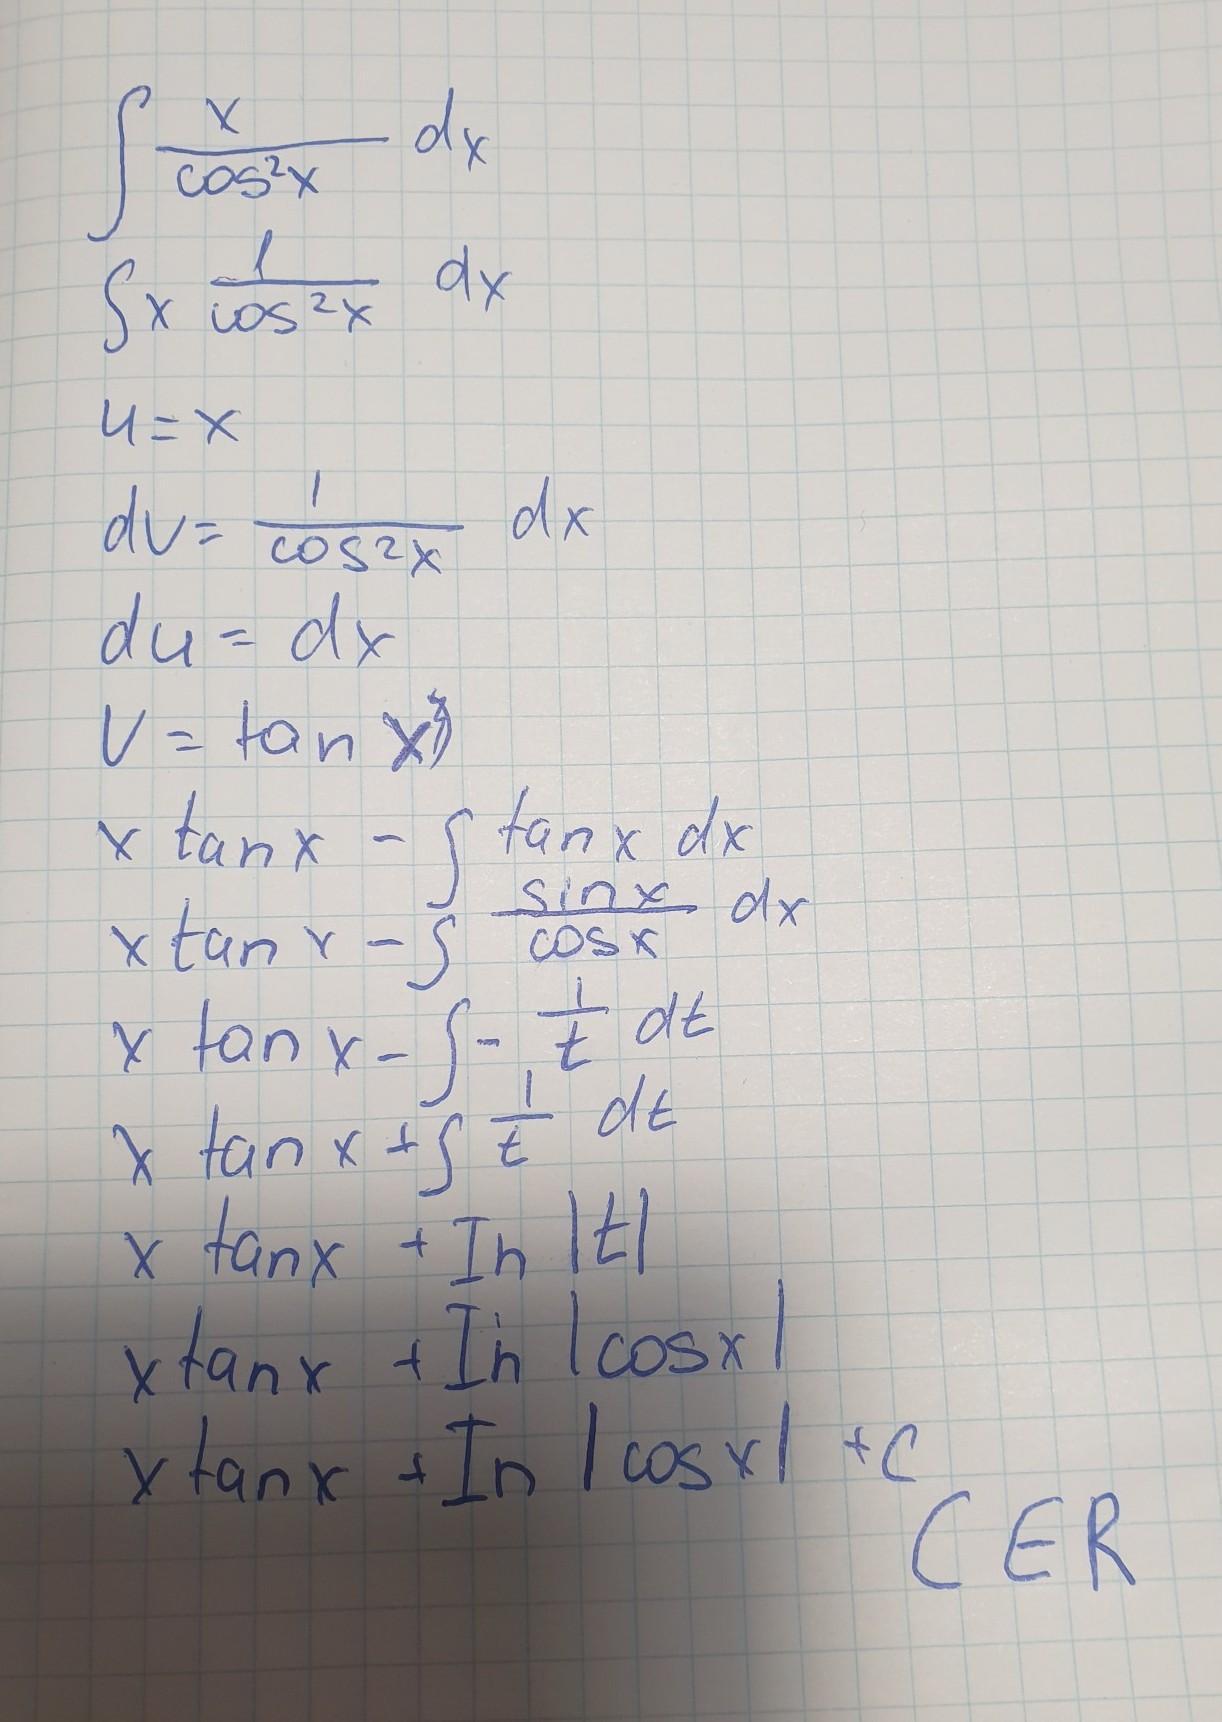 ∫ x/cos²x dx
∫ x 1/cos²x dx
u = x
dv = 1/cos²x dx
du = dx
v = tan x
x tan x - ∫ tan x dx
x tan x - ∫ sin x/cos x dx
x tan x - ∫ - 1/t dt
x tan x + ∫ 1/t dt
x tan x + In |t|
x tan x + In |cos x|
x tan x + In |cos x| + C
C ∈ R